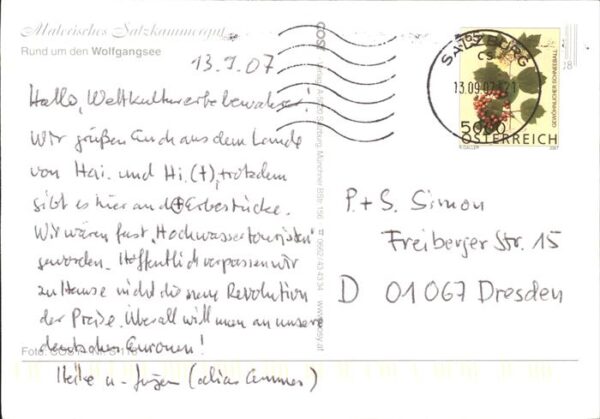 Malerisches Salzkammergut
Rund um den Wolfgangsee
13.9.07
Hallo, Weltkulturerbebewahrer!
Wir grüßen Euch aus dem Lande
von Hai. und Hi. (†), trotzdem
gibt es hier and Erbestücke.
Wir wären fast "Hochwassertouristen"
geworden. Hoffentlich verpassen wir
zuhause nicht die neue Revolution
der Preise. Überall will man an unsere
deutschen Euronen!
Heike u. Jürgen (alias)
Foto: COSY
COSY
Salzburg, Münchner BStr 156
www.cosy.at
SALZBURG
13.09.07
GEWÖHNLICHER SCHNEEBALL
ÖSTERREICH
2007
P. + S. Simon
Freiberger Str. 15
D 01067 Dresden